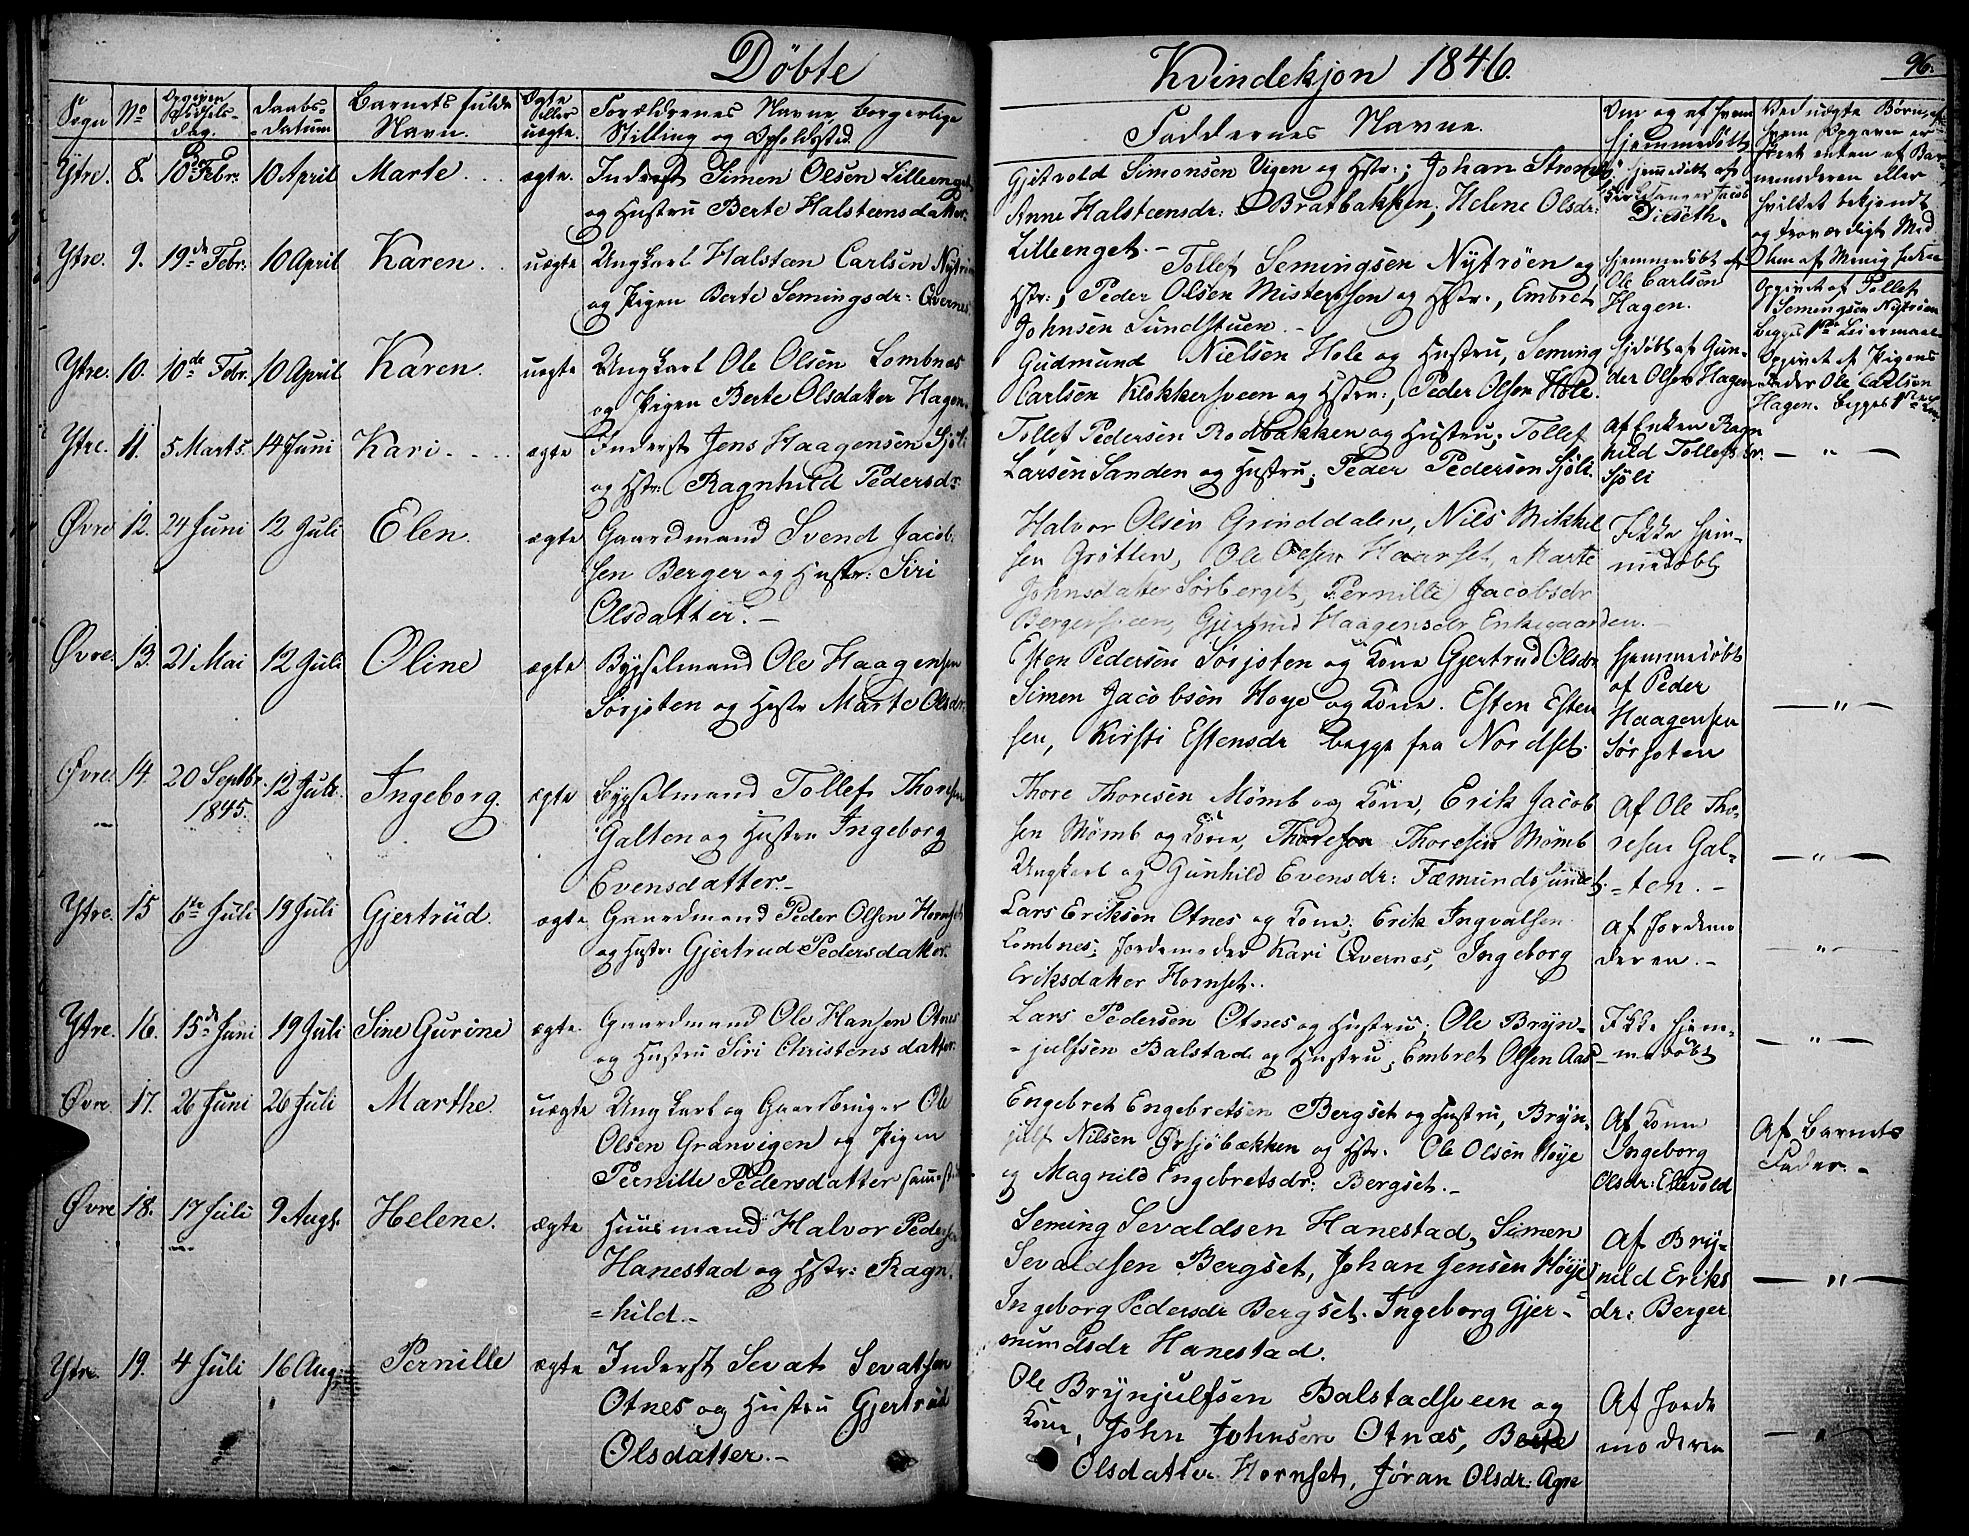 Døbte
Kvindekjøn 1846.
96.
Sogn
No
Opgiven Fødsels-Dag.
Daabs-Datum
Barnets fulde Navn.
Ægte eller uægte.
Forældrenes Navne, borgerlige Stilling og Opholdssted.
Faddernes Navne.
Om og af hvem hjemmedøbt
Ved uægte Børn, af hvem Opgaven er
skeet enten af Barnemoderen eller
hvilket bekjendt og troværdigt Med
Ytre. 8. 10de Febr. 10 April Marte. ægte. Inderst Simen Olsen Lilleenget
og Hustru Berte Halsteensdatter.
Gjetvold Simonsen Vigen og Hstr:, Johan
Anne Halsteensdr: Bratbakken, Helene Olsdr:
Lilleenget.-
hjemmedøbt af
Jacob
Diseth.
Ytre. 9. 19de Febr: 10 April Karen. uægte Ungkarl Halsteen Carlsen Nytrøen
og Pigen Berte Semingsdr: Qvernes.
Tollef Semingsen Nytrøen og
Hstr:, Peder Olsen Misterson og Hstr:, Embret
Johnsen Sundstuen.-
hjemmedøbt af
Ole Carlsen
Hagen.
Opgivet af Tollef
Semingsen Nytrøen
begges 1ste Leiermaal
Ytre. 10. 10de Febr. 10 April Karen. uægte Ungkarl Ole Olsen Lombnæs
og Pigen Berte Olsdatter Hagen.
Gudmund Nielsen Hole og Hustru, Seming
Carlsen Klokkersveen og Hstru:, Peder Olsen Hole.
Hjdøbt af Gun-
der Olsen Hagen
Opgivet af Pigens
Fader Ole Carlsen
Hagen. begges 1ste
Ytre. 11. 5 Marts. 14 Juni Kari. ægte Inderst Jens Haagensen Sjøli
og Hstr: Ragnhild Pedersdr
Tollef Pedersen Rødbakken og Hustru, Tollef
Larsen Sanden og Hustru, Peder Pedersen Sjøli.
Af Enken Ragn
hild Tollefsdr.
Sjøli
- " -
Øvre 12. 24 Juni 12 Juli Elen. ægte Gaardmand Svend Jacob-
sen Berger og Hustr: Siri
Olsdatter.-
Halvor Olsen Grinddalen, Nils Mikkel
sen Grøtten, Ole Olsen Haarset, Marte
Johnsdatter Sørberget, Pernille Jacobsdr
Bergersveen, Gjertrud Haagensdr Enkegaarden.-
Ikke hjem-
medøbt
Øvre. 13. 21 Mai 12 Juli Oline ægte Bygselmand Ole Haagensen
Sørjoten og Hustr Marte Olsdr.
Esten Pedersen Sørjoten og Kone Gjertrud Olsdr
Simen Jacobsen Høye og Kone. Esten Esten
sen, Kirsti Estensdr begge fra Nordset.
hjemmedøbt
af Peder
Haagensen
Sørjoten
- " -
Øvre 14. 20 Septbr. 1845. 12 Juli. Ingeborg. ægte Bygselmand Tollef Thoresen
Galten og Hustru Ingeborg
Evensdatter.-
Thore Thoresen Mømb og Kone, Erik Jacob
sen Mømb og Kone, Thoresen Mømb
Ungkarl og Gunhild Evensdr: Fæmundssundet.
Af Ole Tho-
resen Gal-
ten.-
- " -
Ytre. 15 6te Juli 19 Juli Gjertrud. ægte Gaardmand Peder Olsen Hornset
og Hustr: Gjertrud Pedersdatter.
Lars Eriksen Otnes og Kone, Erik Ingvalsen
Lombnes, Jordemoder Kari Qvernes, Ingeborg
Eriksdatter Hornset.
Af Jordemo
deren.-
- " -
Ytre. 16. 15de Juni 19 Juli Sine Gurine ægte. Gaardmand Ole Hansen Otnes
og Hustru Siri Christensdatter.
Lars Pedersen Otnes og Hustru, Ole Bryn-
julfsen Balstad og Hustru, Embret Olsen Aas
Ikke hjem-
medøbt
- " -
Øvre. 17. 26 Juni 26 Juli Marthe. uægte Ungkarl og Gaardbruger Ole
Olsen Granvigen og Pigen
Pernille Pedersdatter sammesteds
Engebret Engebretsen Bergset og Hustru, Bryn-
julf Nilsen Ørsjøbækken og Hstr. Ole Olsen Høye
og Magnild Engebretsdr: Bergset.-
Af Kone
Ingeborg
Olsdr: Ellevold
Af Barnets
Fader.-
Øvre 18. 17 Juli 9 Augs. Helene. ægte Huusmand Halvor Pedersen
Hanestad og Hstr: Ragn-
hild.-
Seming Sevaldsen Hanestad, Simen
Sevaldsen Bergset, Johan Jensen Høye
Ingeborg Pedersdr Bergset. Ingeborg Gjer-
mundsdr Hanestad.
Af Bry-
nild Eriks
dr: Berger
- " -
Ytre. 19. 4 Juli 16 Aug. Pernille ægte Inderst Sevat Sevatsen
Otnes og Hustru Gjertrud
Olsdatter.-
Ole Brynjulfsen Balstadsveen og
Kone, John Johnsen Otnæs, Berte
Olsdatter Hornset, Jøran Olsdr: Agre
Af Jorde
moderen
- " -